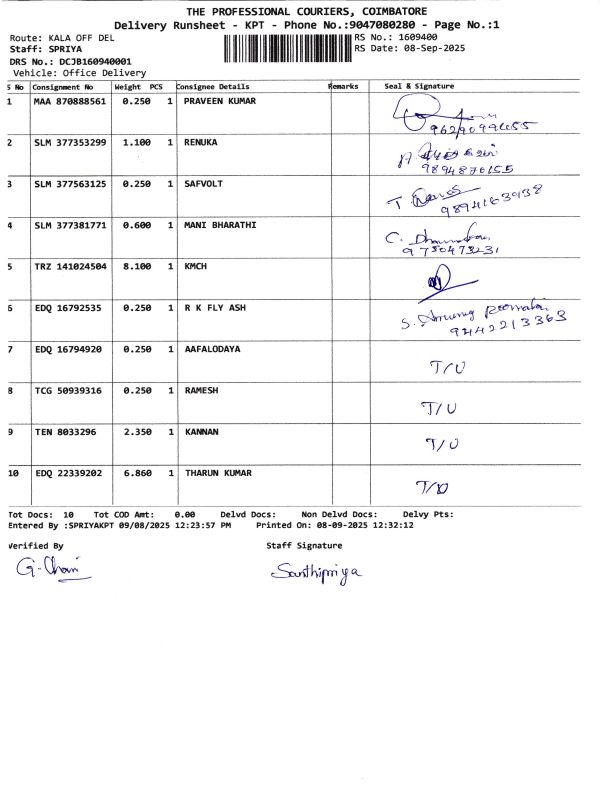 THE PROFESSIONAL COURIERS, COIMBATORE
Delivery Runsheet - KPT - Phone No.:9047080280 - Page No.:1
Route: KALA OFF DEL RS No.: 1609400
Staff: SPRIYA RS Date: 08-Sep-2025
DRS No.: DCJB160940001
Vehicle: Office Delivery
S No Consignment No Weight PCS Consignee Details Remarks Seal & Signature
1 MAA 870888561 0.250 1 PRAVEEN KUMAR
9629099655
2 SLM 377353299 1.100 1 RENUKA
9894876155
3 SLM 377563125 0.250 1 SAFVOLT T.
9894163938
4 SLM 377381771 0.600 1 MANI BHARATHI C.
9750473231
5 TRZ 141024504 8.100 1 KMCH
6 EDQ 16792535 0.250 1 R K FLY ASH S.
9442213363
7 EDQ 16794920 0.250 1 AAFALODAYA T/U
8 TCG 50939316 0.250 1 RAMESH T/U
9 TEN 8033296 2.350 1 KANNAN T/U
10 EDQ 22339202 6.860 1 THARUN KUMAR T/U
Tot Docs: 10 Tot COD Amt: 0.00 Delvd Docs: Non Delvd Docs: Delvy Pts:
Entered By :SPRIYAKPT 09/08/2025 12:23:57 PM Printed On: 08-09-2025 12:32:12
Verified By Staff Signature
Santhipriya